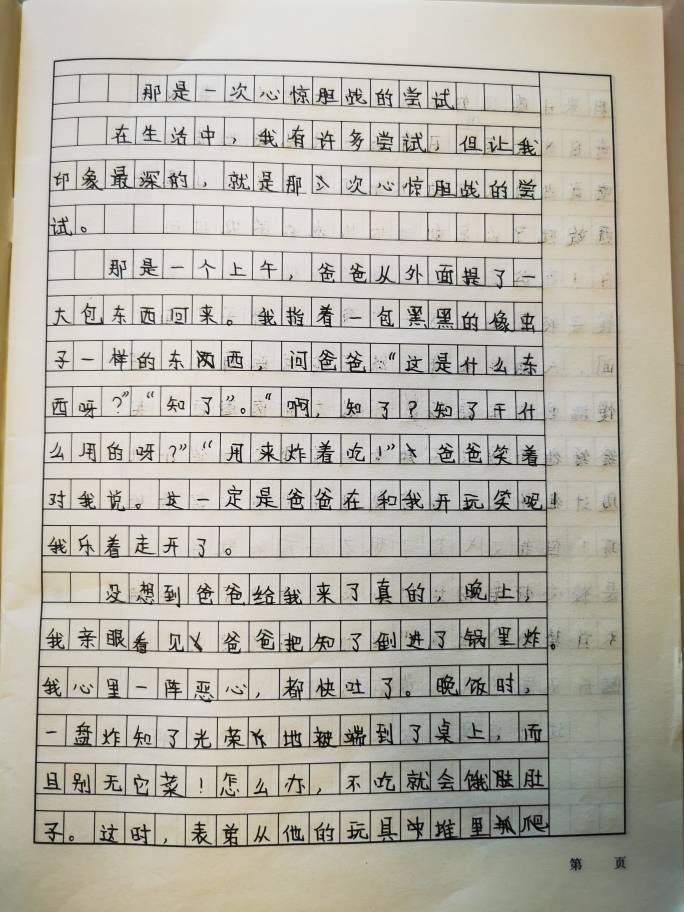 那是一次心惊胆战的尝试
在生活中，我有许多尝试，但让我
印象最深的，就是那次心惊胆战的尝
试。
那是一个上午，爸爸从外面提了一
大包东西回来。我指着一包黑黑的像虫
子一样的东西，问爸爸：“这是什么东
西呀？”“知了”。“啊，知了？知了干什
么用的呀？”“用来炸着吃！”爸爸笑着
对我说。这一定是爸爸在和我开玩笑呢！
我乐着走开了。
没想到爸爸给我来了真的，晚上，
我亲眼看见爸爸把知了倒进了锅里炸。
我心里一阵恶心，都快吐了。晚饭时，
一盘炸知了光荣地被端到了桌上，而
且别无它菜！怎么办，不吃就会饿肚
子。这时，表弟从他的玩具堆里爬
第 页